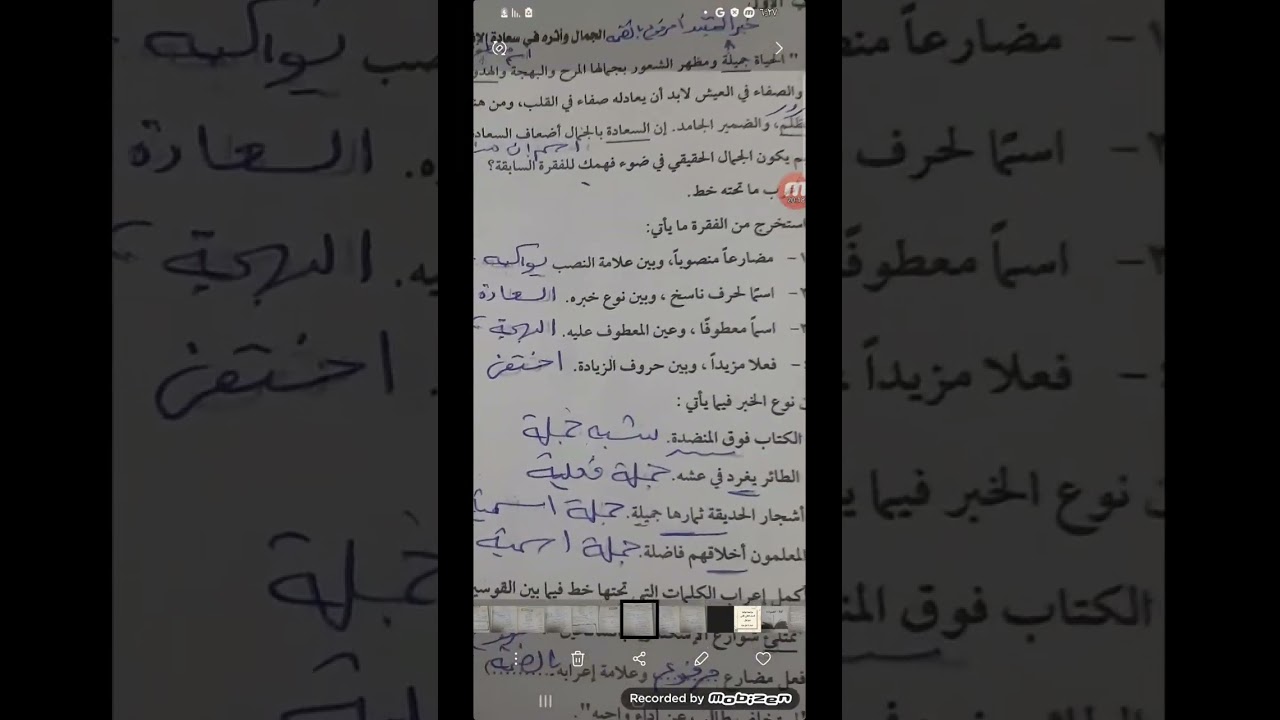 ٦:٢٧
خبر المبتدأ مرفوع بالضمة
الجمال وأثره في سعادة الإ
" الحياة جميلة ومظهر الشعور بجمالها المرح والبهجة والهدو
والصفاء في العيش لابد أن يعادله صفاء في القلب، ومن هن
والضمير الجامد. إن السعادة بالجمال أضعاف السعاد
اسم إن
م يكون الجمال الحقيقي في ضوء فهمك للفقرة السابقة؟
ب ما تحته خط.
استخرج من الفقرة ما يأتي:
١- مضارعاً منصوباً، وبين علامة النصب يواكبه
٢- اسمًا لحرف ناسخ ، وبين نوع خبره. السعادة
٣- اسماً معطوفًا ، وعين المعطوف عليه. البهجة
٤- فعلا مزيداً ، وبين حروف الزيادة. اختفن
ن نوع الخبر فيما يأتي :
الكتاب فوق المنضدة. شبه جملة
الطائر يغرد في عشه. جملة فعلية
أشجار الحديقة ثمارها جميلة. جملة اسمية
المعلمون أخلاقهم فاضلة. جملة اسمية
أكمل إعراب الكلمات التي تحتها خط فيما بين القوسير
تمتلئ شوارع
فعل مضارع مرفوع وعلامة إعرابه بالضمة
Recorded by mobizen
عن أداء واجبه".